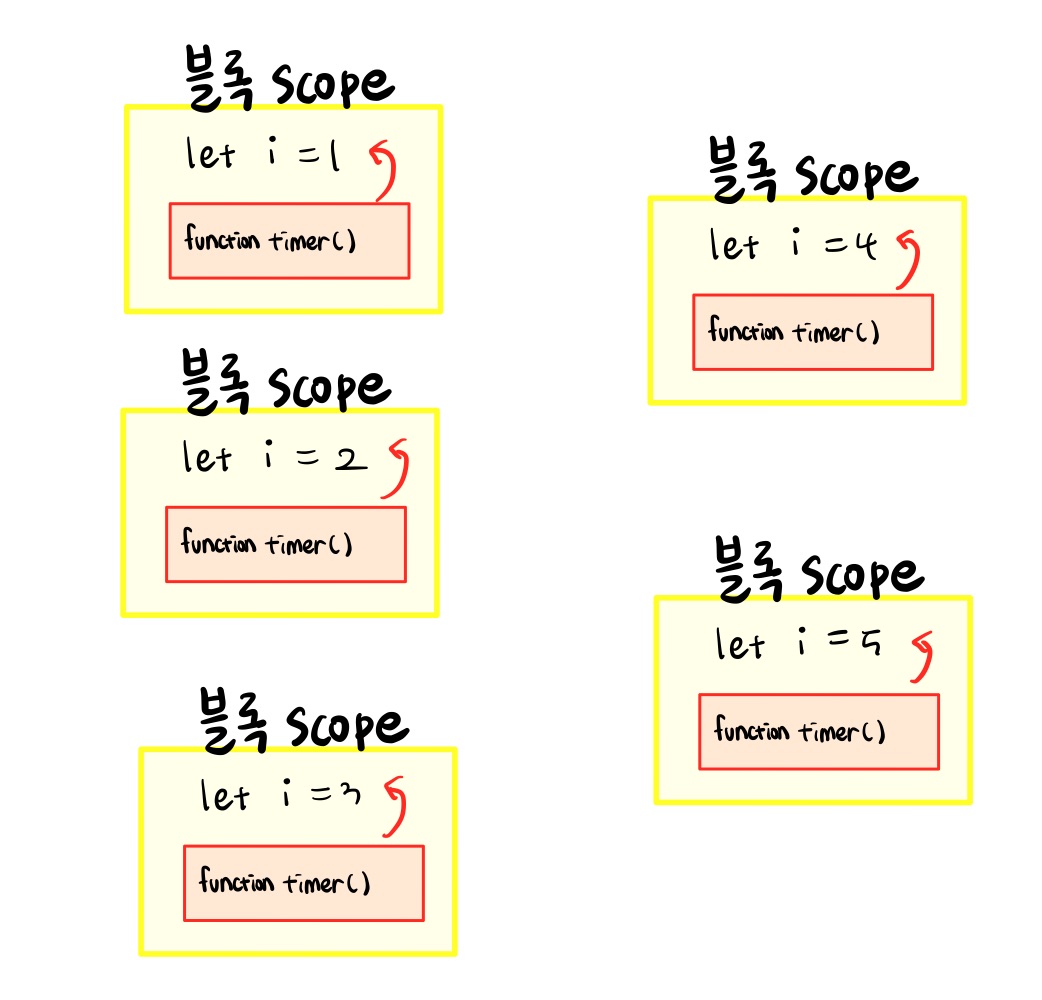 블록 scope
let i = 1
function timer()
블록 scope
let i = 2
function timer()
블록 scope
let i = 3
function timer()
블록 scope
let i = 4
function timer()
블록 scope
let i = 5
function timer()